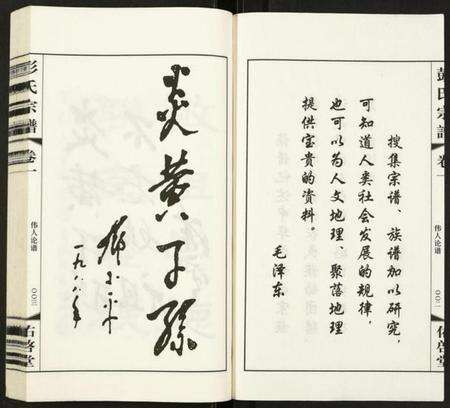 彭氏宗譜
卷一
伟人论谱
〇〇二
佑啓堂
搜集宗谱、族谱加以研究，
可知道人类社会发展的规律，
也可以为人文地理、聚落地理
提供宝贵的资料。
毛泽东
炎黄子孫
邓小平
一九八八年
彭氏宗譜
卷一
伟人论谱
〇〇三
佑啓堂